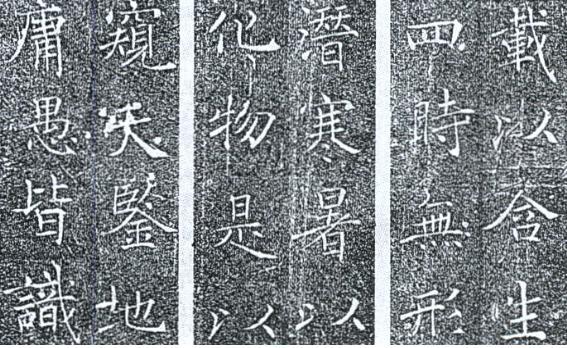 載以含生
四時無形
潛寒暑以
化物是以
窺天鑒地
庸愚皆識